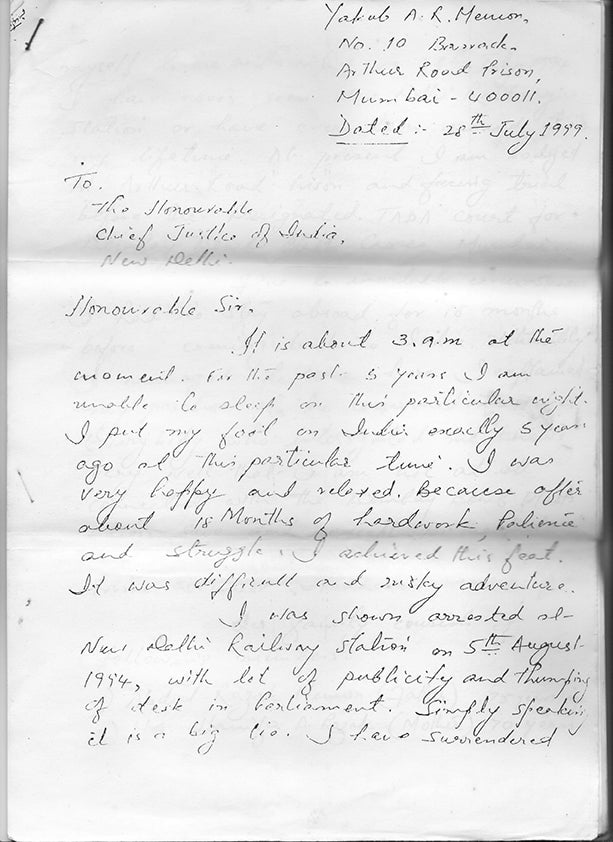 Yakub A. R. Memon,
No. 10 Barrack,
Arthur Road Prison,
Mumbai - 400011.
Dated :- 28th July 1999.
To,
The Honourable
Chief Justice of India,
New Delhi.
Honourable Sir,
It is about 3. a.m at the
moment. For the past 5 years I am
unable to sleep on this particular night.
I put my foot on India exactly 5 years
ago at this particular time. I was
very happy and relaxed. Because after
about 18 Months of hardwork, Patience
and struggle. I achieved this feat.
It was difficult and risky adventure.
I was shown arrested at
New Delhi Railway station on 5th August
1994, with lot of publicity and thumping
of desk in Parliament. Simply speaking
it is a big lie. I have surrendered